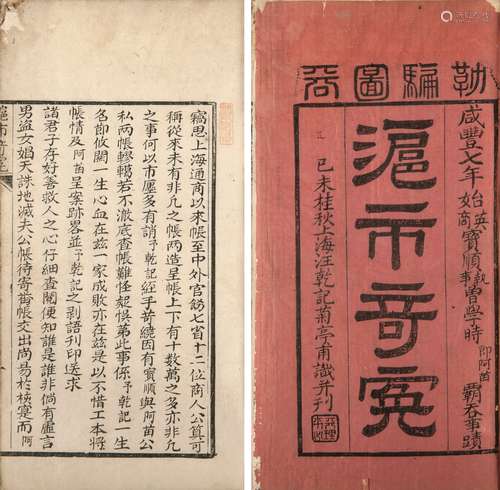 勒騙圖吞
咸豐七年始英商寶順執事曾學時即阿苗霸吞事蹟
滬市奇冤
己未桂秋上海汪乾記菊亭甫識并刊
竊思上海通商以來帳至中外官飭七省十二位商人公算可
稱從來未有非凡之帳兩造呈帳上下有十數萬之多亦非凡
之事何以市廛多有誚予乾記經手前總因有寶順與阿苗公
私兩帳轇轕若不澈底查帳難怪起悞第此事係予乾記一生
名節攸關一生心血在茲一家成敗亦在茲是以不惜工本將
帳情及阿苗呈案跡畧並予乾記之剖語刊印送求
諸君子存好善救人之心仔細查閱便知誰是誰非倘有虛言
男盜女娼天誅地滅夫公帳待寄舊帳交出尚易於核而阿
滬市奇